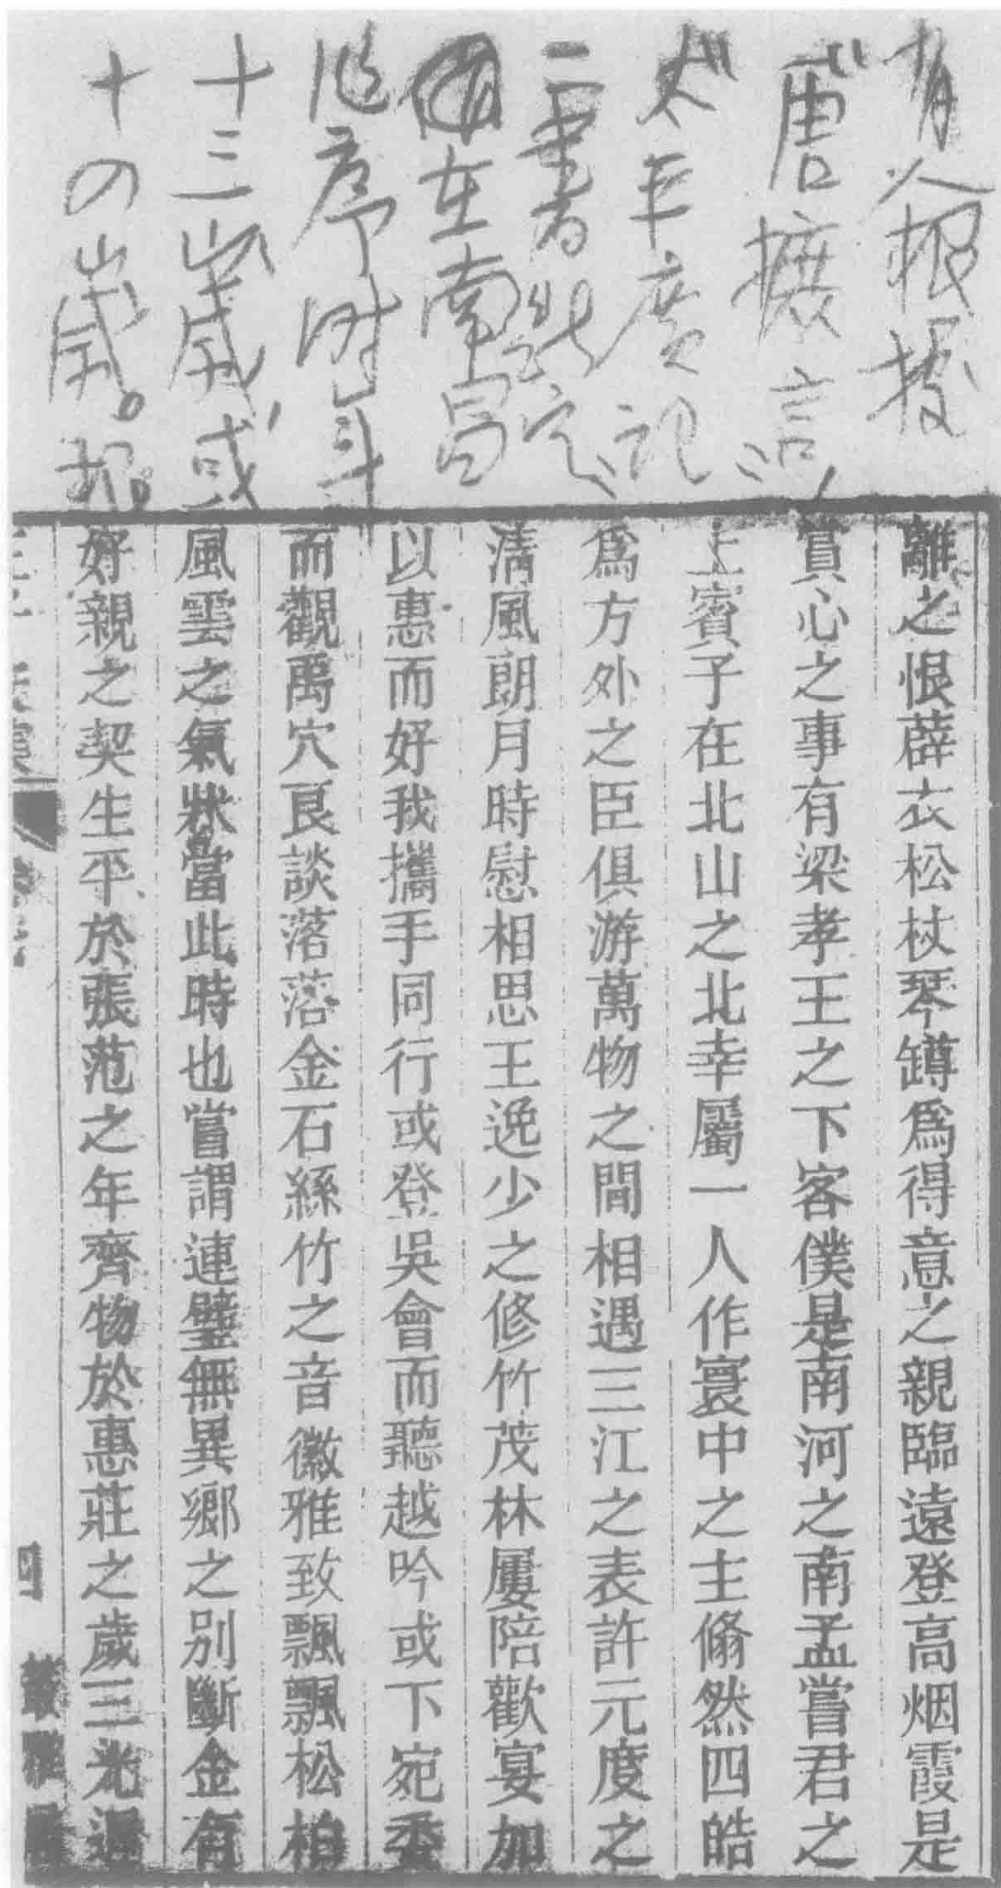 有人根据
“唐摭言”、
“太平广记”
二书断定
在南昌
作序时年
十三岁，或
十四岁。据。
離之恨薜衣松杖琴罇爲得意之親臨遠登高烟霞是
賞心之事有梁孝王之下客僕是南河之南孟嘗君之
上賓子在北山之北幸屬一人作寰中之主翛然四皓
爲方外之臣俱游萬物之間相遇三江之表許元度之
淸風朗月時慰相思王逸少之修竹茂林屢陪歡宴加
以惠而好我攜手同行或登吳會而聽越吟或下宛委
而觀禹穴良談落落金石絲竹之音徽雅致飄飄松柏
風雲之氣狀當此時也嘗謂連璧無異鄉之別斷金有
好親之契生平於張范之年齊物於惠莊之歲三光遞
四